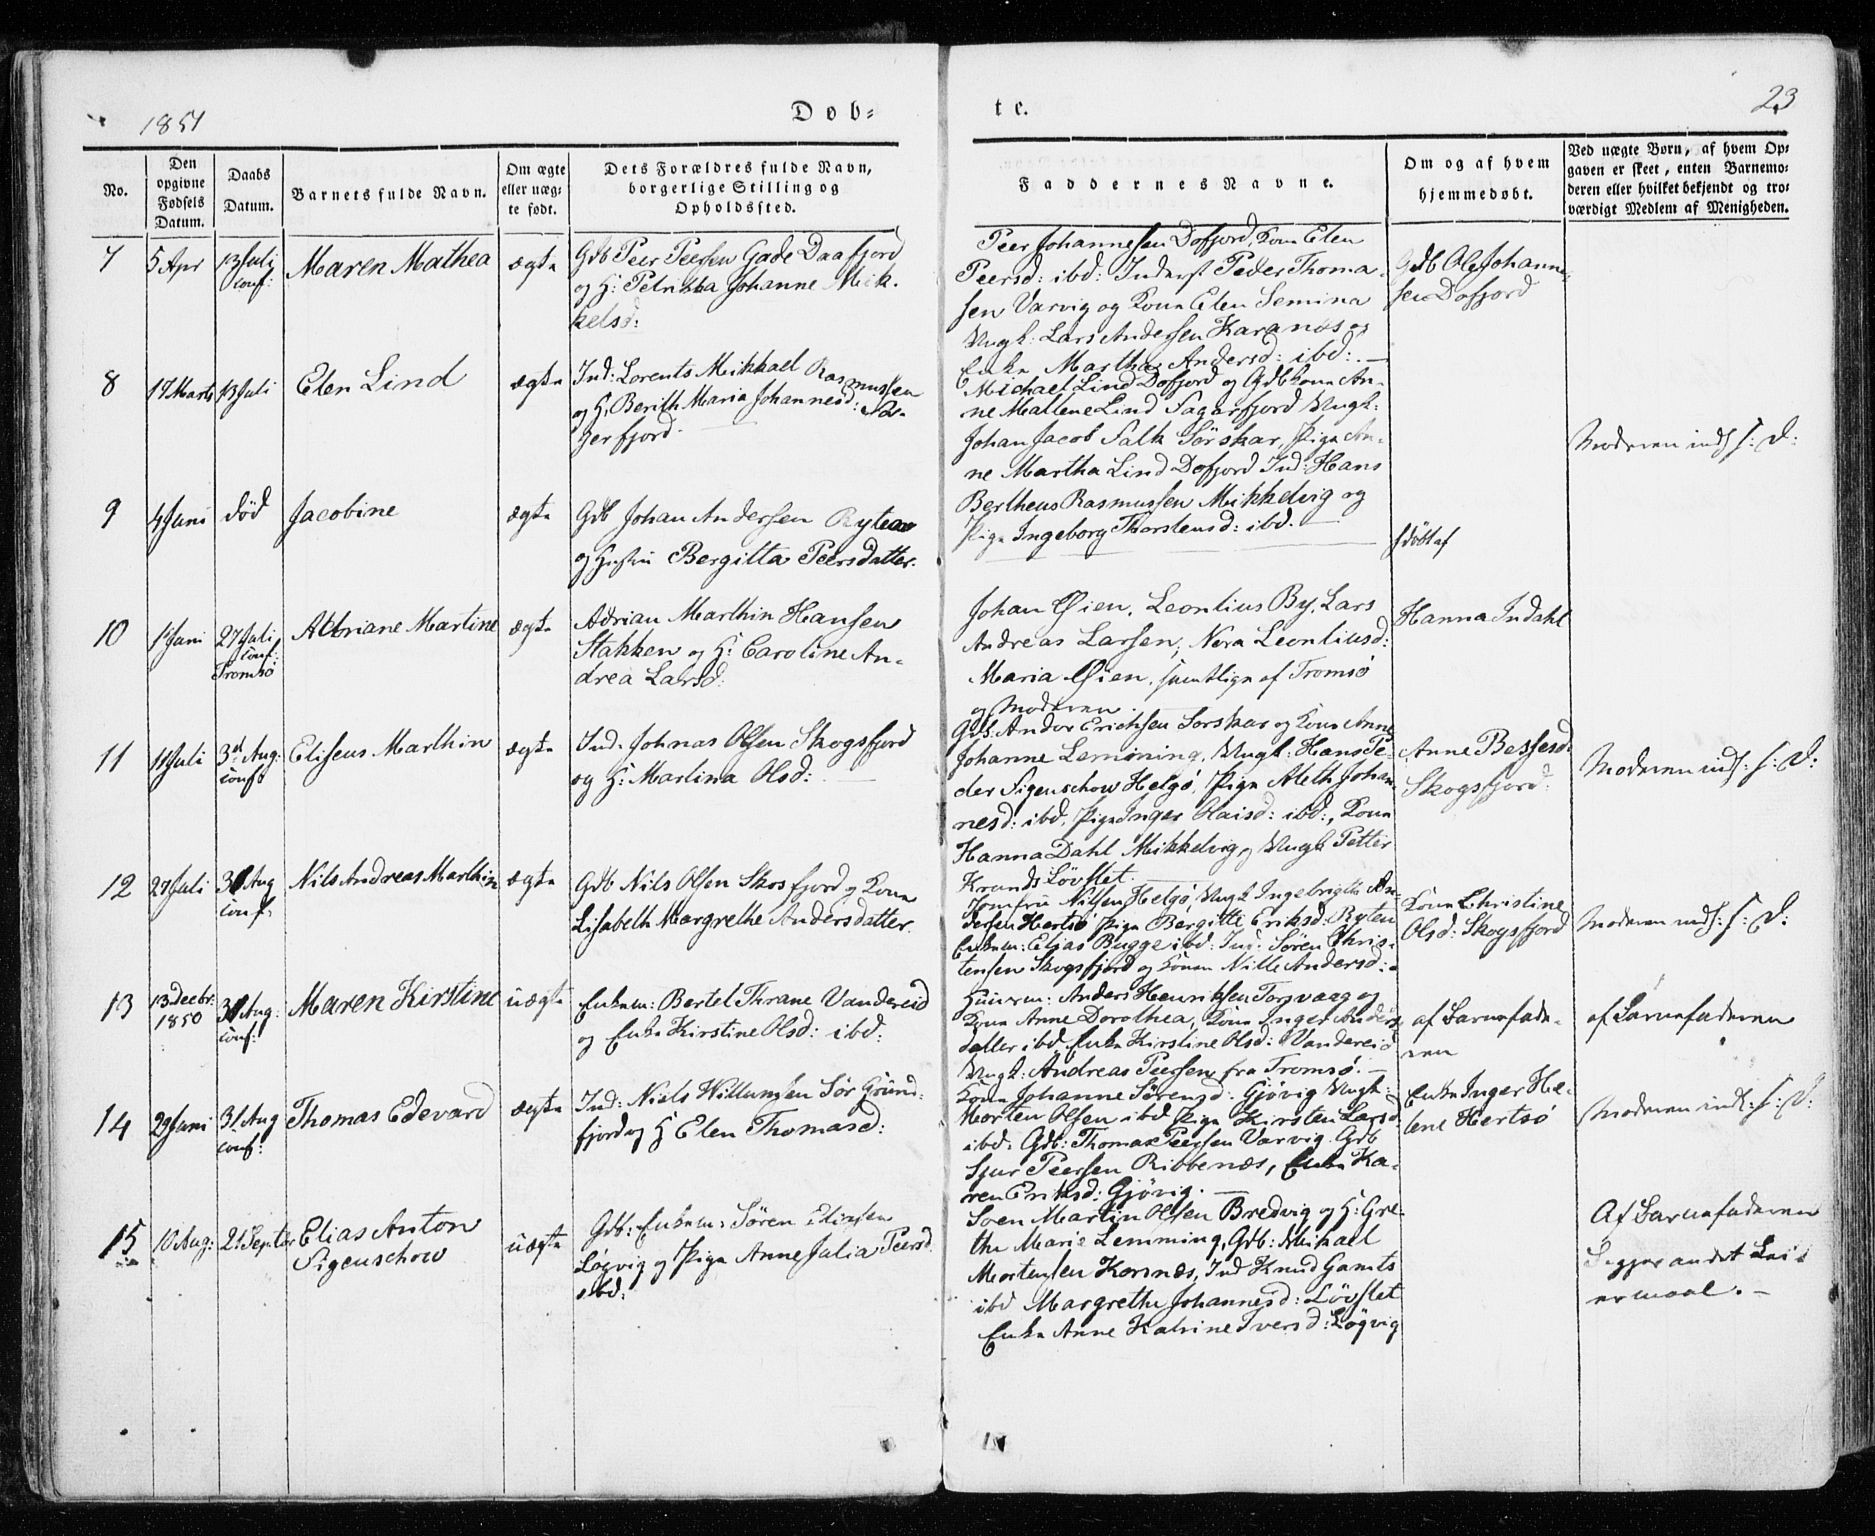 1851
Døb-
te.
23
No.
Den opgivne Fødsels Datum.
Daabs Datum.
Barnets fulde Navn.
Om ægte eller uæg-
te født.
Dets Forældres fulde Navn,
borgerlige Stilling og
Opholdssted.
Faddernes Navne.
Om og af hvem
hjemmedøbt.
Ved uægte Børn, af hvem Op-
gaven er skeet, enten Barnemo-
deren eller hvilket bekjendt og tro-
værdigt Medlem af Menigheden.
7
5 Apr
13 Juli
conf:
Maren Mathea
ægte
Gdb Peer Peersen Gade Daafjord
og H: Petrikka Johanne Mik-
kelsd:
Peer Johannesen Dofjord, Kone Elen
Peersd: ibd: Inderst Peder Thoma-
sen Varvig og Kone Elen Semina
Ungk: Lars Andersen Karanæs og
Enke Martha Andersd: ibd:. —
Gdb Ole Johanne-
sen Dofjord
8
17 Marts
13 Juli
Elen Lind
ægte
Ind: Lorents Mikkael Rasmussen
og H: Berith Maria Johannesd: Sa-
gerfjord.
Michael Lind Dofjord og Gdbkone An-
ne Mallene Lind Sagerfjord Ungk:
Johan Jacob Falk Sørskar, Pige An-
ne Martha Lind Dofjord Ind: Hans
Bertheus Rasmussen Mikkelvig og
Pige Ingeborg Thorstensd: ibd. —
Moderen inds: s: D:
9
4 Juni
død
Jacobine
ægte
Gdb Johan Andersen Ryteøe
og Hustru Bergitta Peersdatter.
hdøbt af
10
1 Juni
27 Juli
conf:
Tromsø
Adriane Martine
ægte
Adrian Marthin Hansen
Stakken og H: Caroline An-
drea Larsd:
Johan Øien, Leontius By, Lars
Andreas Larsen, Nora Leontiusd:
Maria Øien, samtlige af Tromsø
og Moderen.
Hanna Indahl
11
11 Juli
3d Aug:
conf:
Eliseus Marthin
ægte
Ind. Johnas Olsen Skogsfjord
og H: Martina Olsd: —
Gdb. Andor Erichsen Sorskar og Kone Anne
Johanne Lemoning, Ungk: Hans Pe-
der Sigenschow Helgø, Pige Aleth Johan-
nesd: ibd, Pige Inger Olaisd: ibd:, Kone
Hanna Dahl Mikkelvig, Ungk Petter
Krands Løvslet. —
Anne Bessesd:
Skogsfjord:
Moderen inds: s: D:
12
27 Juli
31 Aug
conf:
Nils Andreas Marthin
ægte
Gdb Nils Olsen Skosfjord og Kone
Lisabeth Margrethe Andersdatter.
Jomfru Nilsen Helgø, Ungk Ingebrigtt An-
dersen Hertsø Pige Bergitte Eriksd: Ryten
Enkem: Elias Bugge ibd: Ind: Søren Chris-
tensen Skogsfjord og Konen Nille Andersd:
Kone Christine
Olsd: Skogsfjord
Moderen inds: s: D:
13
13 Decbr:
1850
31 Aug:
conf:
Maren Kirstine
uægte
Enkem: Bertel Thrane Vandereid
og Enke Kirstine Olsd: ibd:
Huusm: Anders Henriksen Torsvaag og
Kone Anne Dorothea, Kone Inger Anders-
datter ibd, Enke Kirstine Olsd: Vandereid
Ungk: Andreas Peersen fra Tromsø. —
af Barnefade-
ren
af Barnefaderen
14
29 Juni
31 Aug
conf:
Thomas Edevard
ægte
Ind: Niels Willumsen Sør Grund-
fjord og H Elen Thomasd:
Kone Johanne Sørensd: Gjøvig Ungk:
Morten Olsen ibd Pige Kirsten Larsd
ibd: Gdb: Thomas Peersen Varvig. Gdb
Sjur Peersen Ribbenæs, Enke Ka-
ren Eriksd: Gjøvig. —
Enke Inger He-
lene Hertsø
Moderen inds: s: D:
15
10 Aug:
21 Septbr
Elias Anton
Sigenschow
uægte
Gdb: Enkem: Søren Eliasen
Løgvig og Pige Anne Julia Peersd.
ibd:
Sven Martin Olsen Bredvig og H: Gre-
the Marie Lemming, Gdb: Mikael
Mortensen Kornæs, Ind Knud Gamts
ibd Margrethe Johannesd: Løvslet
Enke Anne Katrine Iversd: Løgvig
Af Barnefaderen
Begges andet Lei-
ermaal. —